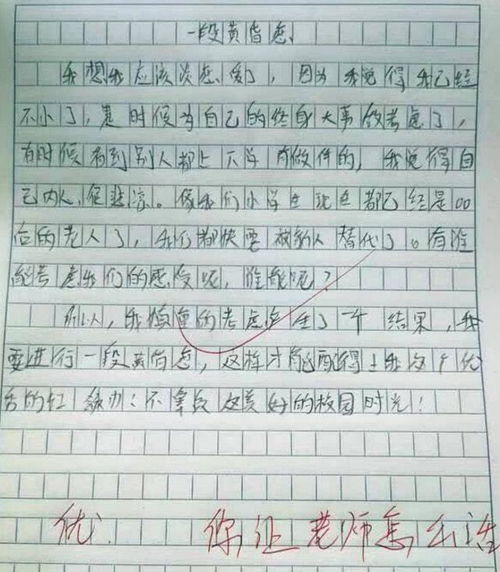 一段黄昏恋
我想我应该谈恋爱了，因为我觉得我已经
不小了，是时候为自己的终身大事做考虑了，
有时候看到别人都上下学有做伴的，我觉得自
己内心很悲凉。像我们小学生现在都已经是00
后的老人了，我们都快要被新人替代了。有谁
能考虑我们的感受呢，谁能呢？
所以，我慎重的考虑产生了一个结果，我
要进行一段黄昏恋，这样才能配得上我这个优
秀的红领巾！不辜负这美好的校园时光！
优 你让老师怎么活